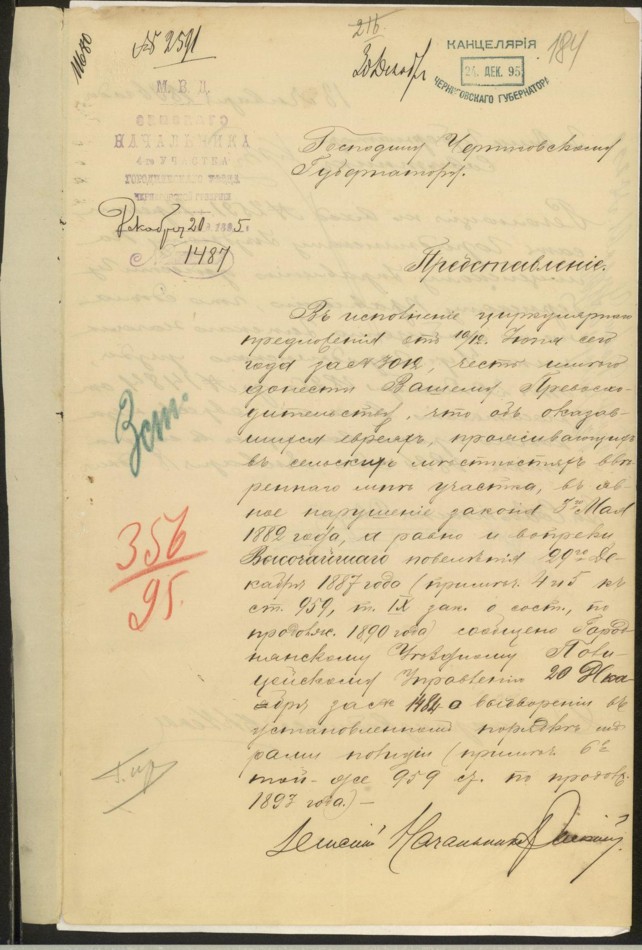 11680
№ 2591
216.
30 Декабр
КАНЦЕЛЯРІЯ
24. ДЕК. 95
ЧЕРНИГОВСКАГО ГУБЕРНАТОРА
184
М. В. Д.
ЗЕМСКАГО
НАЧАЛЬНИКА
4-го УЧАСТКА
ГОРОДНЯНСКАГО УѢЗДА
ЧЕРНИГОВСКОЙ ГУБЕРНІИ
Декабря 20 д. 1895 г.
№ 1487
Господину Черниговскому
Губернатору.
Представленіе.
Въ исполненіе циркулярнаго
предложенія отъ 10/12 Іюня сего
года за № 3012, честь имѣю
донести Вашему Превосхо-
дительству, что объ оказав-
шихся евреяхъ, проживающихъ
въ сельскихъ мѣстностяхъ ввѣ-
реннаго мнѣ участка, въ яв-
ное нарушеніе закона 3го Мая
1882 года, а равно и вопреки
Высочайшаго повелѣнія 29го Де-
кабря 1887 года (примѣч. 4 и 5 къ
ст. 959, т. IX зак. о сост., по
продолж. 1890 года) сообщено Город-
нянскому Уѣздному Поли-
цейскому Управленію 20 Дека-
бря за № 1484 о выдвореніи въ
установленномъ порядкѣ мѣ-
рами полиціи (примѣч. 6е
той-же 959 ст. по продолж.
1893 года.) —
Земскій Начальникъ
3 ст.
356
95.